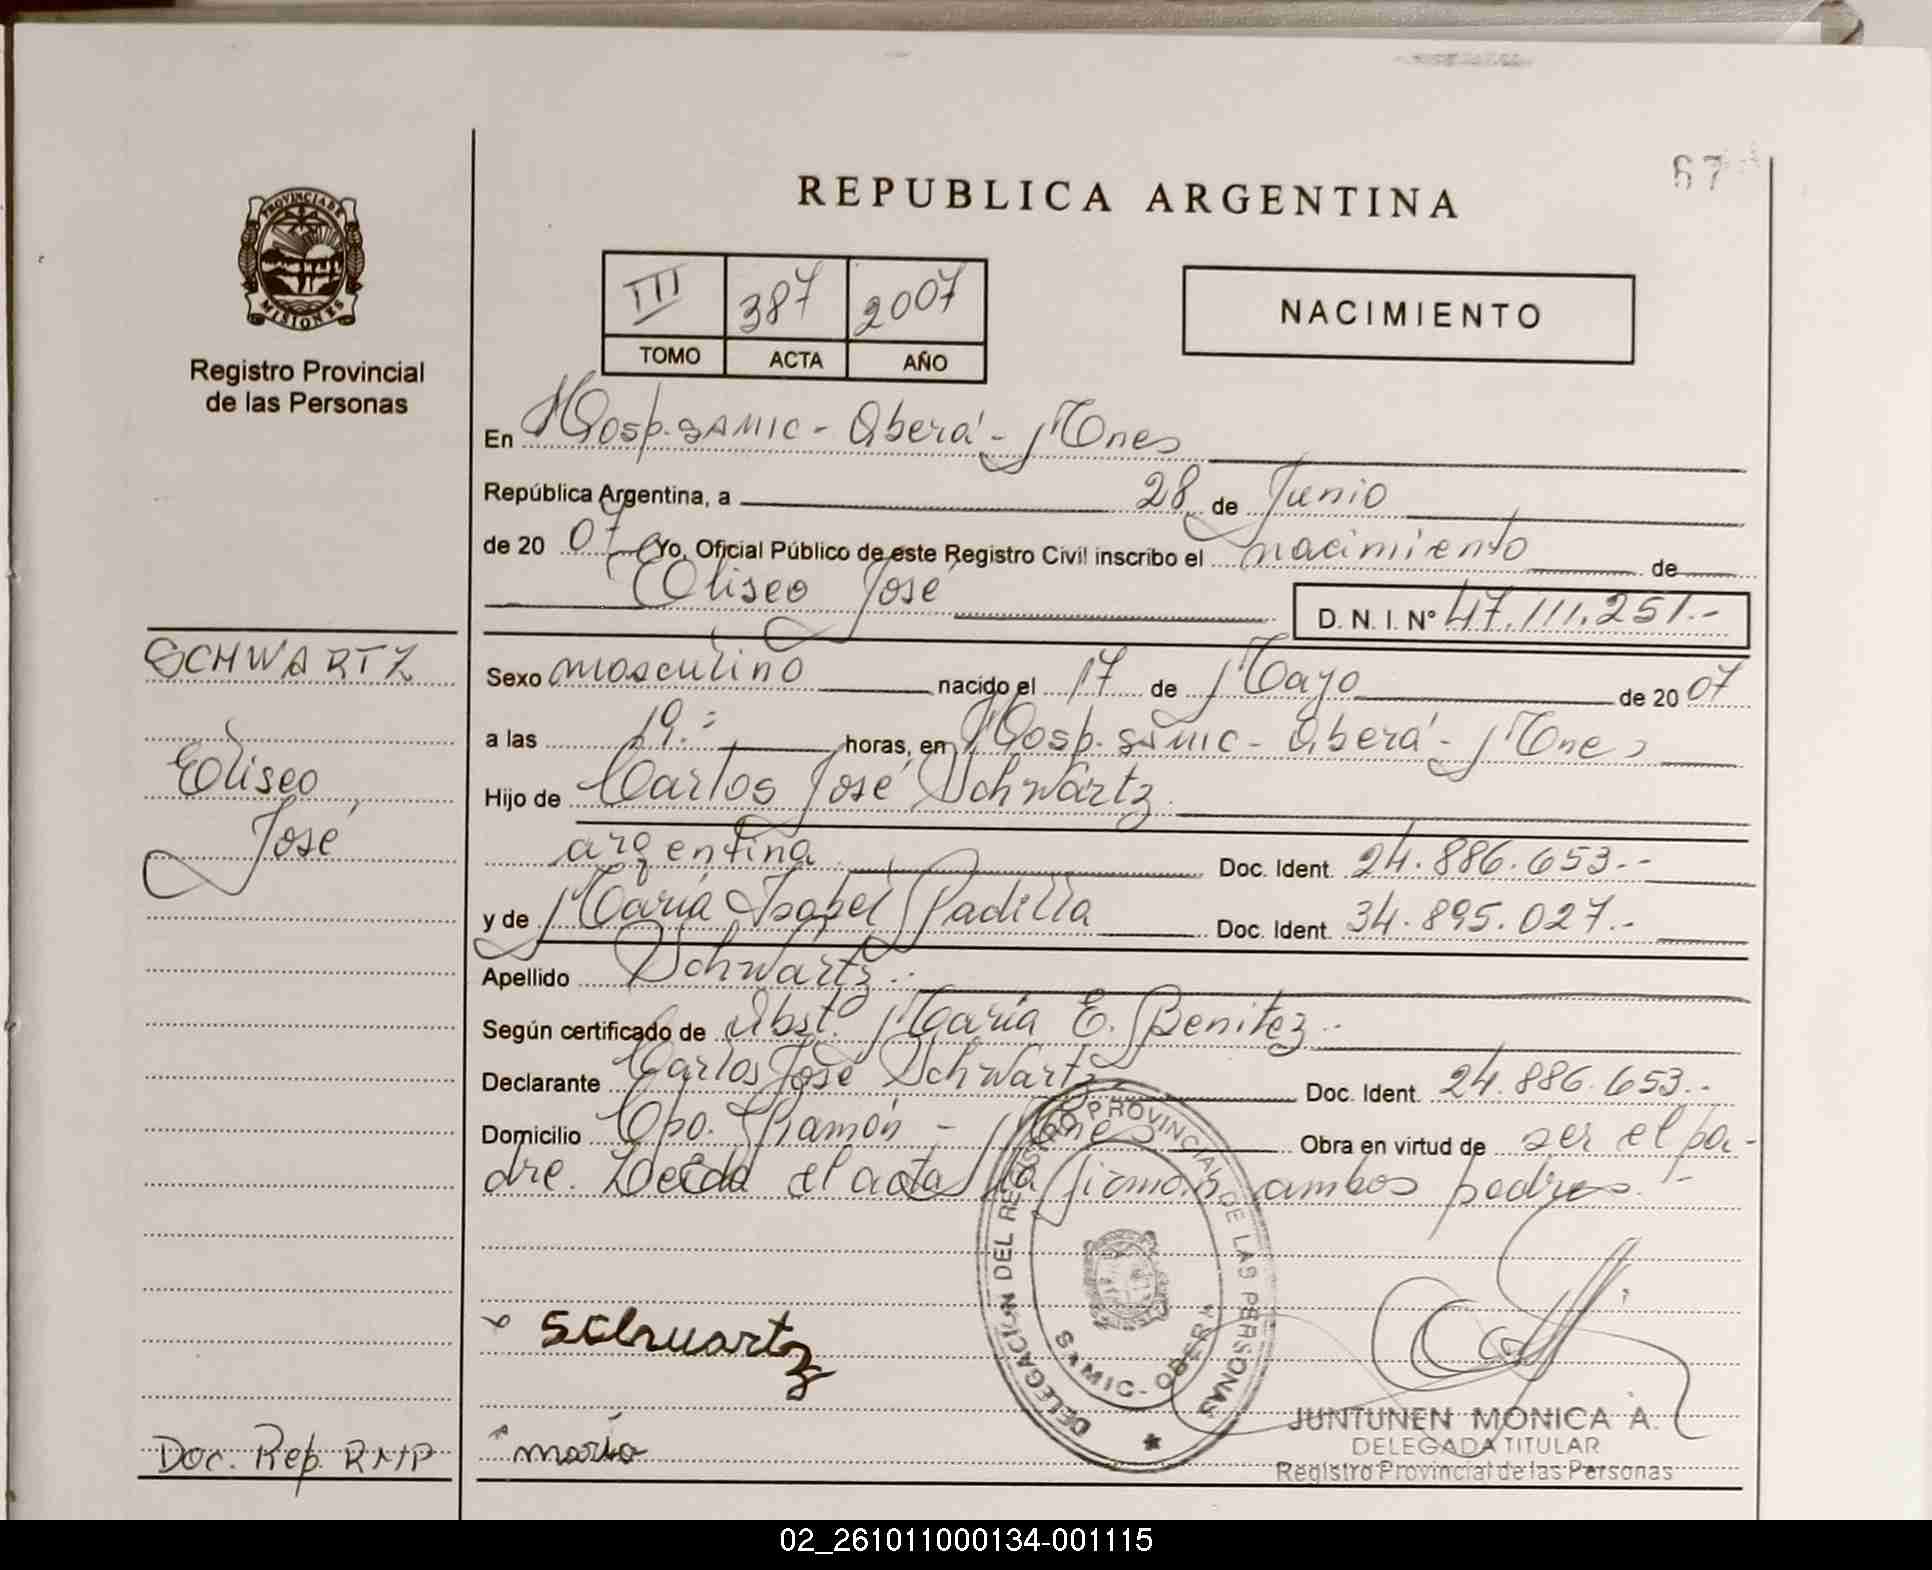 REPUBLICA ARGENTINA
67
PROVINCIA DE
MISIONES
Registro Provincial
de las Personas
III 387 2007
TOMO ACTA AÑO
NACIMIENTO
En Hosp. SAMIC - Oberá - Mnes
República Argentina, a 28 de Junio
de 20 07 Yo, Oficial Público de este Registro Civil inscribo el nacimiento de
Eliseo José
D. N. I. Nº 47.111.251.-
SCHWARTZ
Eliseo
José
Sexo masculino nacido el 17 de Mayo de 20 07
a las 19.- horas, en Hosp. SAMIC - Oberá - Mnes
Hijo de Carlos José Schwartz
argentina Doc. Ident. 24.886.653.-
y de María Isabel Padilla Doc. Ident. 34.895.027.-
Apellido Schwartz.-
Según certificado de Obst. María E. Benitez.-
Declarante Carlos José Schwartz Doc. Ident. 24.886.653.-
Domicilio Cpo. Ramón - Mnes Obra en virtud de ser el pa-
dre. Leida el acta la firman ambos padres.-
DELEGACION DEL REGISTRO PROVINCIAL DE LAS PERSONAS
SAMIC - OBERA
Schwartz
maria
JUNTUNEN MONICA A.
DELEGADA TITULAR
Registro Provincial de las Personas
Doc. Rep. RNP
02_261011000134-001115